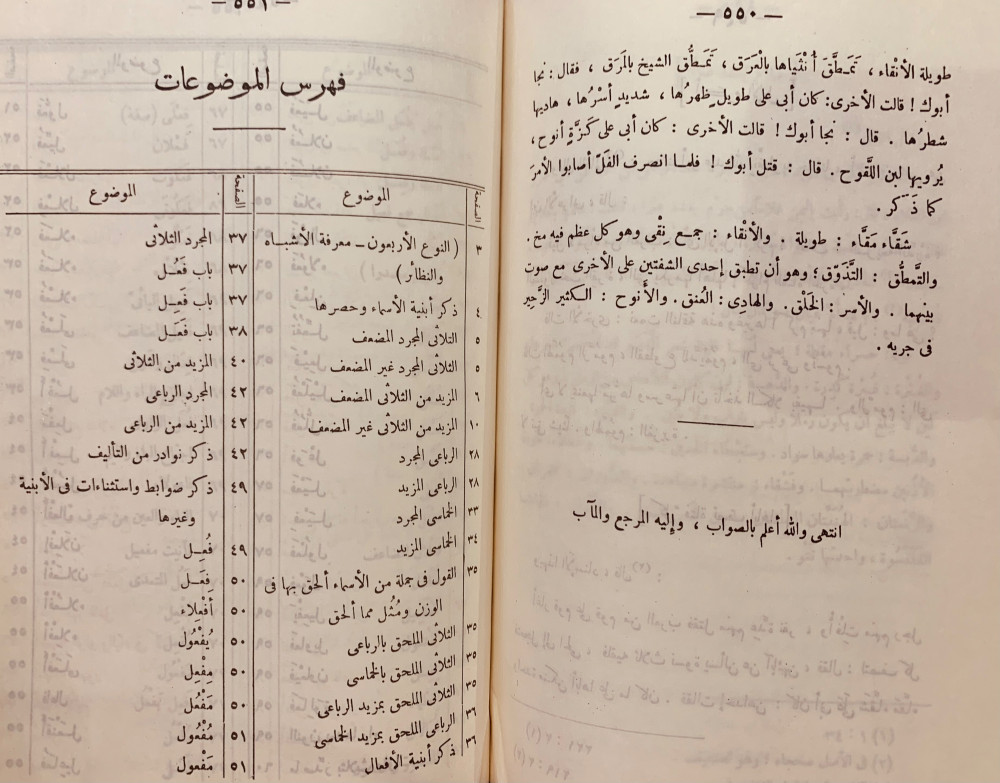 — ٥٥٠ —
طويلة الأنْقاء ، تَمَـطَّقَ أُنْثَيَاها بالْعَرَق ، تَمَـطُّق الشيخ بالمَرَق ، فقال: نجا
أبوك ! قالت الأخرى: كان أبى على طويلٍ ظهرُها ، شديدٍ أسْرُها ، هاديها
شطرُها . قال : نجا أبوك ! قالت الأخرى : كان أبى على كَزَّةٍ أنوح،
يُرويها لبن اللَّقوح . قال : قتل أبوك ! فلما انصرف الفَلّ أصابوا الأمرَ
كما ذَكَر .
شَقَّاء مَقَّاء : طويلة . والأنْقاء : جمع نِقْى وهو كل عظم فيه مخ.
والتَّمطُّق : التَّذَوّق ؛ وهو أن تطبق إحدى الشفتين على الأخرى مع صوت
بينهما . والأسر : الخَلْق . والهادِى : العنق . والأَنوح : الكثير الزَّحِير
فى جريه .
انتهى والله أعلم بالصواب ، وإليه المرجع والمآب
— ٥٥١ —
فهرس الموضوعات
الصفحة الموضوع
٣ ( النوع الأربعون ــ معرفة الأشباه
والنظائر )
٤ ذكر أبنية الأسماء وحصرها
٥ الثلاثى المجرد المضعف
٥ الثلاثى المجرد غير المضعف
٦ المزيد من الثلاثى المضعف
١٠ المزيد من الثلاثى غير المضعف
٢٨ الرباعى المجرد
٢٨ الرباعى المزيد
٣٣ الخماسى المجرد
٣٤ الخماسى المزيد
٣٥ القول فى جملة من الأسماء ألحق بها فى
الوزن ومُثُل مما ألحق
٣٥ الثلاثى الملحق بالرباعى
٣٥ الثلاثى الملحق بالخماسى
٣٥ الثلاثى الملحق بمزيد الرباعى
٣٦ الرباعى الملحق بمزيد الخماسى
٣٦ ذكر أبنية الأفعال
الصفحة الموضوع
٣٧ المجرد الثلاثى
٣٧ باب فَعُـل
٣٧ باب فَعِـل
٣٨ باب فَعَـل
٤٠ المزيد من الثلاثى
٤٢ المجرد الرباعى
٤٢ المزيد من الرباعى
٤٢ ذكر نوادر من التأليف
٤٩ ذكر ضوابط واستثناءات فى الأبنية
وغيرها
٤٩ فُعِـل
٥٠ فِعَـل
٥٠ أفْعِلاء
٥٠ يُفْعُول
٥٠ مِفْعِل
٥٠ مَفْعُل
٥١ مُفْعُول
٥١ مَفْعول